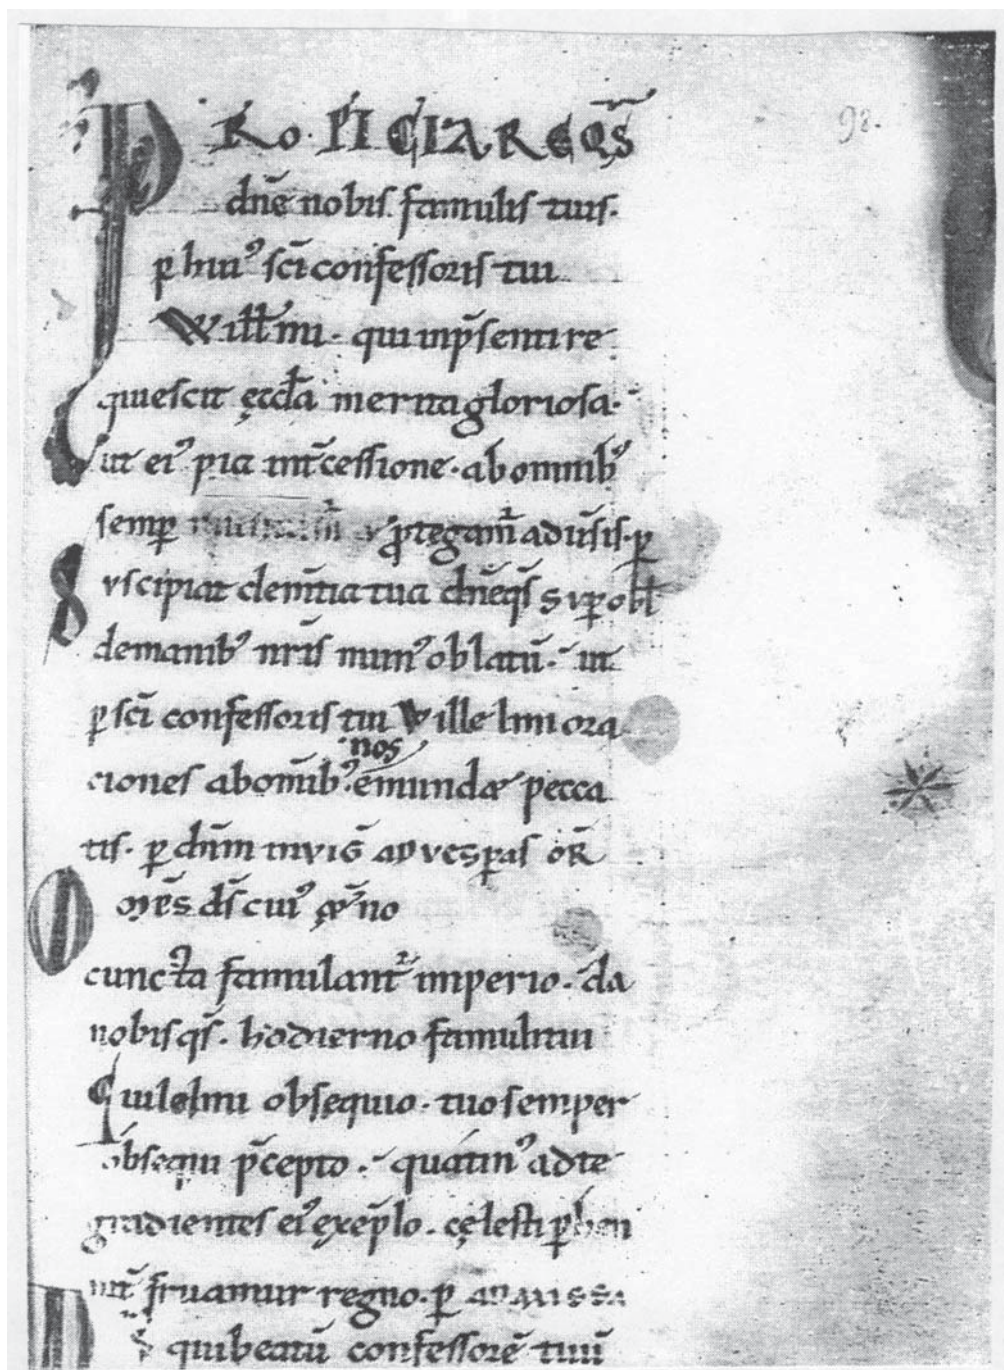 98.
PRO PICIARE Q̄S
dn̄e nobis famulis tuis.
p huiꝰ sc̄i confessoris tui
Willl̄mi. qui in p̄senti re
quiescit ęccl̄a merita gloriosa.
ut eiꝰ pia int̄cessione. ab omnibꝰ
semp ꝓtegam̄ adūsis. p
Suscipiat clem̄tia tua dn̄e q̄s SVP OBL
de manibꝰ nr̄is munꝰ oblatū. ut
p sc̄i confessoris tui Willelmi ora
nos
ciones ab om̄ibꝰ. emunda pecca
tis. p dn̄m IN VIG̅ AD VESPAS OR̄
Om̄s ds̄ cuiꝰ no
cuncta famulant̄ imperio. da
nobis q̄s. hodierno famuli tui
Guilelmi obsequio. tuo semper
obsequi p̄cepto. quatinꝰ ad te
gradientes eiꝰ exēplo. cęlesti phen
nit̄ fruamur regno. p AD MISSA
qui beatū confessorē tuū